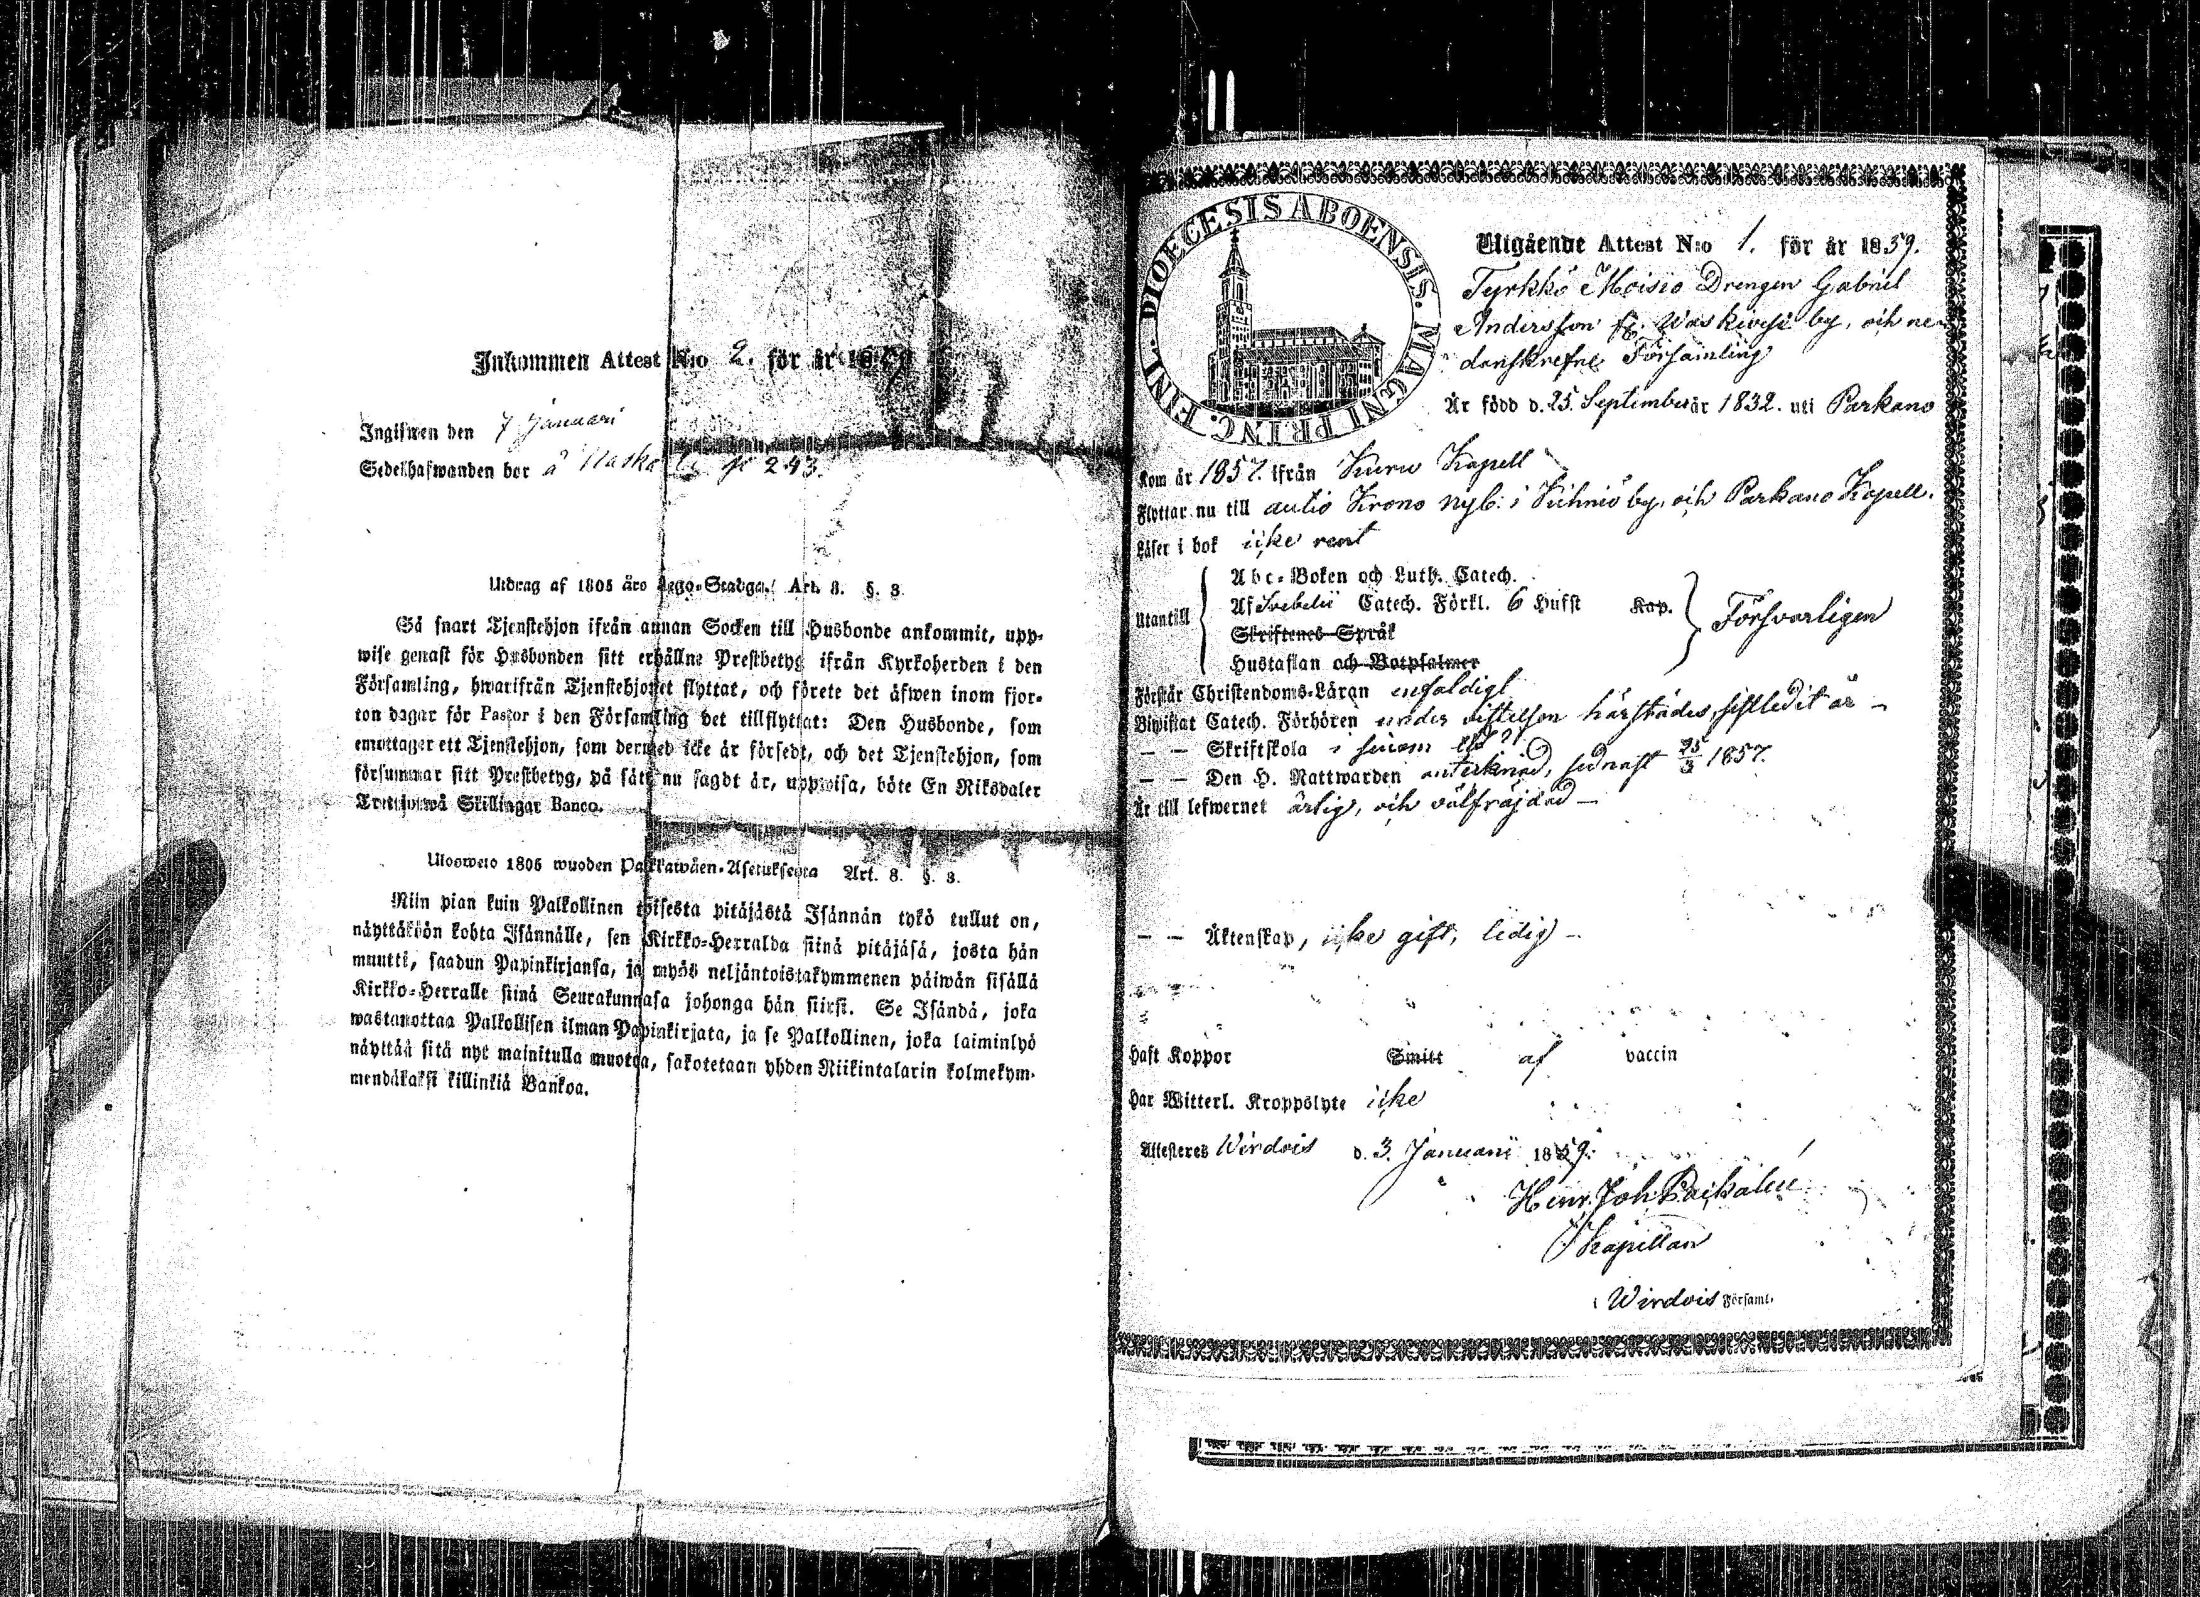 Inkommen Attest N:o 2. för år 1859
Ingifwen den 7 Januari
Sedelhafwanden bor å p. 243.
Utdrag af 1805 års Lego-Stadga, Art. 8. §. 3.
Så snart Tjenstehjon ifrån annan Socken till Husbonde ankommit, upp-
wise genast för Husbonden sitt erhållne Prestbetyg ifrån Kyrkoherden i den
Församling, hwarifrån Tjenstehjonet flyttat, och förete det äfwen inom fjor-
ton dagar för Pastor i den Församling det tillflyttat: Den Husbonde, som
emottager ett Tjenstehjon, som dermed icke är försedt, och det Tjenstehjon, som
försummar sitt Prestbetyg, på sätt nu sagdt är, uppwisa, böte En Riksdaler
Trettiotwå Skillingar Banco.
Uloswelo 1805 wuoden Palkkawäen-Asetuksesta Art. 8. §. 3.
Niin pian kuin Palkollinen toisesta pitäjästä Isännän tykö tullut on,
näyttäköön kohta Isännälle, sen Kirkko-Herralda siinä pitäjäsä, josta hän
muutti, saadun Papinkirjansa, ja myös neljäntoistakymmenen päiwän sisällä
Kirkko-Herralle siinä Seurakunnasa johonga hän siirsi. Se Isändä, joka
wastanottaa Palkollisen ilman Papinkirjata, ja se Palkollinen, joka laiminlyö
näyttää sitä nyt mainitulla muotoa, sakotetaan yhden Riikintalarin kolmekym-
mendäkaksi killinkiä Bankoa.
DIOECESIS ABOENSIS. MAGNI PRINC. FINL.
Utgående Attest N:o 1. för år 1859.
Tyrkkö Moisio Drengen Gabriel
Andersson fr. Waskivesi by, och ne-
danskrefne Församling
Är född d. 25. September år 1832. uti Parkano
Kom år 1857. ifrån Kuru Kapell
Flyttar nu till autio Krono nyb: i Kihniö by, och Parkano Kapell.
Läser i bok icke rent
Utantill
Abc-Boken och Luth. Catech.
Af Svebelii Catech. Förkl. 6 Hufst Kap.
Skriftenes Språk
Hustaflan och Botpsalmer
Försvarligen
Förstår Christendoms-Läran enfaldigt
Biwistat Catech. Förhören under vistelsen härstädes, sistledit år –
– – Skriftskola i sinom tid
– – Den H. Nattwarden antecknad, sednast 25/3 1857.
Är till lefwernet ärlig, och välfräjdad –
– – Äktenskap, icke gift, ledig –
Haft Koppor Smitt af vaccin
Har Witterl. Kroppslyte icke
Attesteres Wirdois d. 3. Januarii 1859.
Henr. Joh.
Kapellan
i Wirdois Församl.